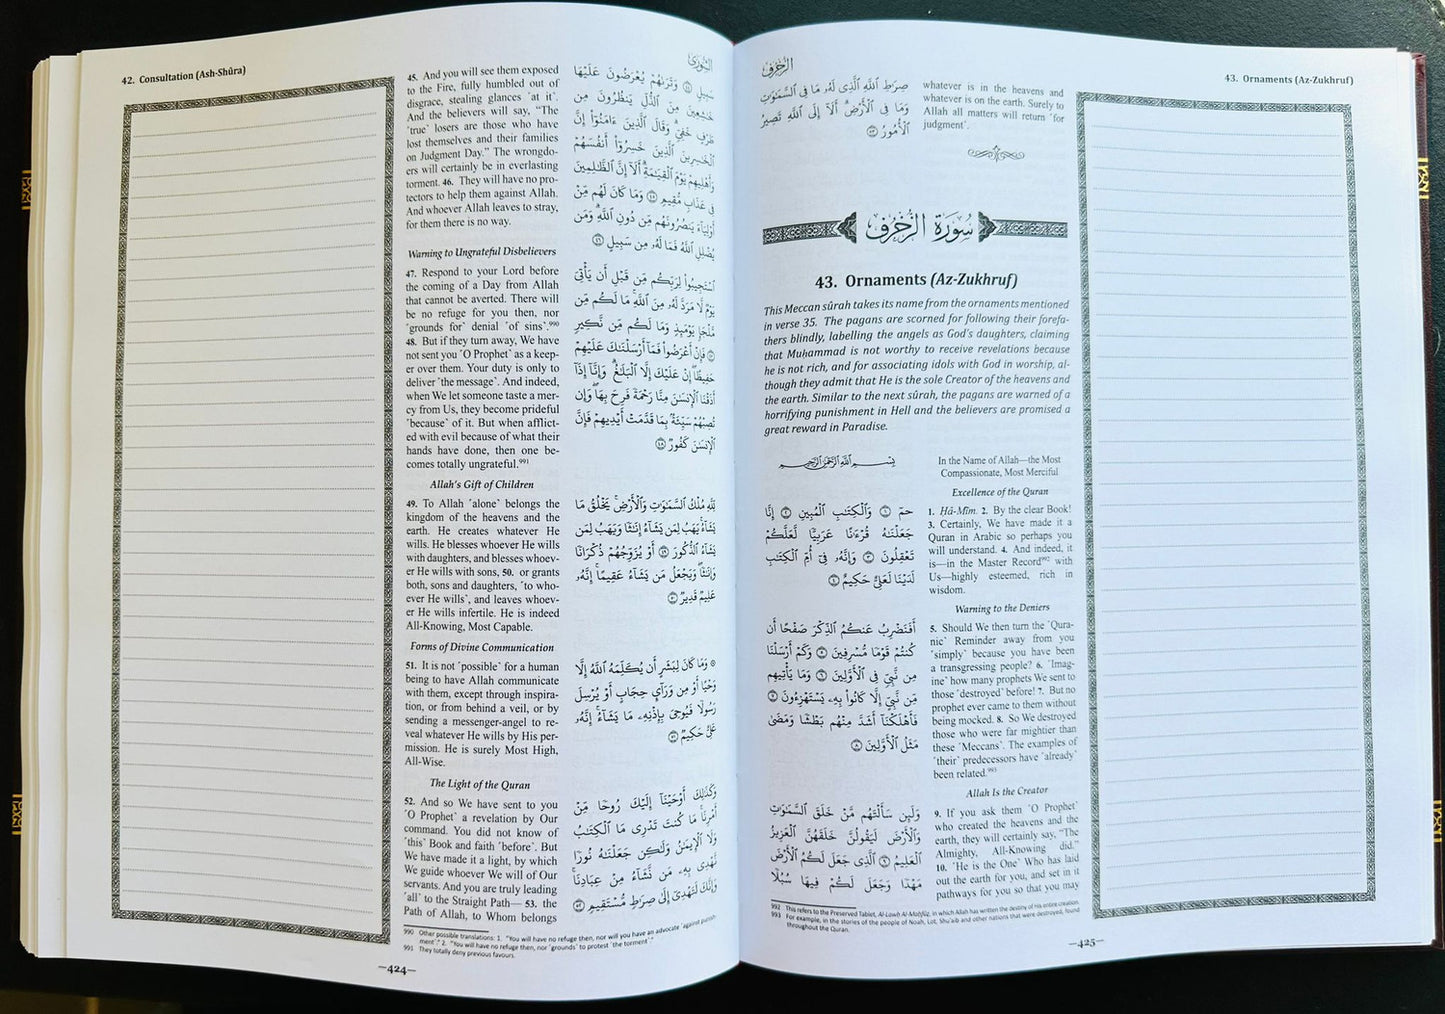 42. Consultation (Ash-Shûra)
45. And you will see them exposed
to the Fire, fully humbled out of
disgrace, stealing glances ˹at it˺.
And the believers will say, “The
˹true˺ losers are those who have
lost themselves and their families
on Judgment Day.” The wrongdo-
ers will certainly be in everlasting
torment. 46. They will have no pro-
tectors to help them against Allah.
And whoever Allah leaves to stray,
for them there is no way.
Warning to Ungrateful Disbelievers
47. Respond to your Lord before
the coming of a Day from Allah
that cannot be averted. There will
be no refuge for you then, nor
˹grounds for˺ denial ˹of sins˺.990
48. But if they turn away, We have
not sent you ˹O Prophet˺ as a keep-
er over them. Your duty is only to
deliver ˹the message˺. And indeed,
when We let someone taste a mer-
cy from Us, they become prideful
˹because˺ of it. But when afflict-
ed with evil because of what their
hands have done, then one be-
comes totally ungrateful.991
Allah's Gift of Children
49. To Allah ˹alone˺ belongs the
kingdom of the heavens and the
earth. He creates whatever He
wills. He blesses whoever He wills
with daughters, and blesses whoev-
er He wills with sons, 50. or grants
both, sons and daughters, ˹to who-
ever He wills˺, and leaves whoev-
er He wills infertile. He is indeed
All-Knowing, Most Capable.
Forms of Divine Communication
51. It is not ˹possible˺ for a human
being to have Allah communicate
with them, except through inspira-
tion, or from behind a veil, or by
sending a messenger-angel to re-
veal whatever He wills by His per-
mission. He is surely Most High,
All-Wise.
The Light of the Quran
52. And so We have sent to you
˹O Prophet˺ a revelation by Our
command. You did not know of
˹this˺ Book and faith ˹before˺. But
We have made it a light, by which
We guide whoever We will of Our
servants. And you are truly leading
˹all˺ to the Straight Path— 53. the
Path of Allah, to Whom belongs
الشُّورَىٰ
سَبِيلٍ ٤٤ وَتَرَىٰهُمْ يُعْرَضُونَ عَلَيْهَا
خَـٰشِعِينَ مِنَ ٱلذُّلِّ يَنظُرُونَ مِن
طَرْفٍ خَفِىٍّ ۗ وَقَالَ ٱلَّذِينَ ءَامَنُوٓا۟ إِنَّ
ٱلْخَـٰسِرِينَ ٱلَّذِينَ خَسِرُوٓا۟ أَنفُسَهُمْ
وَأَهْلِيهِمْ يَوْمَ ٱلْقِيَـٰمَةِ ۗ أَلَآ إِنَّ ٱلظَّـٰلِمِينَ
فِى عَذَابٍ مُّقِيمٍ ٤٥ وَمَا كَانَ لَهُم مِّنْ
أَوْلِيَآءَ يَنصُرُونَهُم مِّن دُونِ ٱللَّهِ ۗ وَمَن
يُضْلِلِ ٱللَّهُ فَمَا لَهُۥ مِن سَبِيلٍ ٤٦
ٱسْتَجِيبُوا۟ لِرَبِّكُم مِّن قَبْلِ أَن يَأْتِىَ
يَوْمٌ لَّا مَرَدَّ لَهُۥ مِنَ ٱللَّهِ ۚ مَا لَكُم مِّن
مَّلْجَإٍ يَوْمَئِذٍ وَمَا لَكُم مِّن نَّكِيرٍ
٤٧ فَإِنْ أَعْرَضُوا۟ فَمَآ أَرْسَلْنَـٰكَ عَلَيْهِمْ
حَفِيظًا ۖ إِنْ عَلَيْكَ إِلَّا ٱلْبَلَـٰغُ ۗ وَإِنَّآ إِذَآ
أَذَقْنَا ٱلْإِنسَـٰنَ مِنَّا رَحْمَةً فَرِحَ بِهَا ۖ وَإِن
تُصِبْهُمْ سَيِّئَةٌۢ بِمَا قَدَّمَتْ أَيْدِيهِمْ فَإِنَّ
ٱلْإِنسَـٰنَ كَفُورٌ ٤٨
لِّلَّهِ مُلْكُ ٱلسَّمَـٰوَٰتِ وَٱلْأَرْضِ ۚ يَخْلُقُ مَا
يَشَآءُ ۚ يَهَبُ لِمَن يَشَآءُ إِنَـٰثًا وَيَهَبُ لِمَن
يَشَآءُ ٱلذُّكُورَ ٤٩ أَوْ يُزَوِّجُهُمْ ذُكْرَانًا
وَإِنَـٰثًا ۖ وَيَجْعَلُ مَن يَشَآءُ عَقِيمًا ۚ إِنَّهُۥ
عَلِيمٌ قَدِيرٌ ٥٠
۞ وَمَا كَانَ لِبَشَرٍ أَن يُكَلِّمَهُ ٱللَّهُ إِلَّا
وَحْيًا أَوْ مِن وَرَآئِ حِجَابٍ أَوْ يُرْسِلَ
رَسُولًا فَيُوحِىَ بِإِذْنِهِۦ مَا يَشَآءُ ۚ إِنَّهُۥ
عَلِىٌّ حَكِيمٌ ٥١
وَكَذَٰلِكَ أَوْحَيْنَآ إِلَيْكَ رُوحًا مِّنْ
أَمْرِنَا ۚ مَا كُنتَ تَدْرِى مَا ٱلْكِتَـٰبُ
وَلَا ٱلْإِيمَـٰنُ وَلَـٰكِن جَعَلْنَـٰهُ نُورًا
نَّهْدِى بِهِۦ مَن نَّشَآءُ مِنْ عِبَادِنَا ۚ
وَإِنَّكَ لَتَهْدِىٓ إِلَىٰ صِرَٰطٍ مُّسْتَقِيمٍ ٥٢
990 Other possible translations: 1. “You will have no refuge then, nor will you have an advocate ˹against punish-
ment˺.” 2. “You will have no refuge then, nor ˹grounds˺ to protest ˹the torment˺.”
991 They totally deny previous favours.
—424—
الزُّخْرُف
43. Ornaments (Az-Zukhruf)
صِرَٰطِ ٱللَّهِ ٱلَّذِى لَهُۥ مَا فِى ٱلسَّمَـٰوَٰتِ
وَمَا فِى ٱلْأَرْضِ ۗ أَلَآ إِلَى ٱللَّهِ تَصِيرُ
ٱلْأُمُورُ ٥٣
whatever is in the heavens and
whatever is on the earth. Surely to
Allah all matters will return ˹for
judgment˺.
سُورَةُ الزُّخْرُفِ
43. Ornaments (Az-Zukhruf)
This Meccan sûrah takes its name from the ornaments mentioned
in verse 35. The pagans are scorned for following their forefa-
thers blindly, labelling the angels as God's daughters, claiming
that Muḥammad is not worthy to receive revelations because
he is not rich, and for associating idols with God in worship, al-
though they admit that He is the sole Creator of the heavens and
the earth. Similar to the next sûrah, the pagans are warned of a
horrifying punishment in Hell and the believers are promised a
great reward in Paradise.
بِسْمِ ٱللَّهِ ٱلرَّحْمَـٰنِ ٱلرَّحِيمِ
حمٓ ١ وَٱلْكِتَـٰبِ ٱلْمُبِينِ ٢ إِنَّا
جَعَلْنَـٰهُ قُرْءَٰنًا عَرَبِيًّا لَّعَلَّكُمْ
تَعْقِلُونَ ٣ وَإِنَّهُۥ فِىٓ أُمِّ ٱلْكِتَـٰبِ
لَدَيْنَا لَعَلِىٌّ حَكِيمٌ ٤
أَفَنَضْرِبُ عَنكُمُ ٱلذِّكْرَ صَفْحًا أَن
كُنتُمْ قَوْمًا مُّسْرِفِينَ ٥ وَكَمْ أَرْسَلْنَا
مِن نَّبِىٍّ فِى ٱلْأَوَّلِينَ ٦ وَمَا يَأْتِيهِم
مِّن نَّبِىٍّ إِلَّا كَانُوا۟ بِهِۦ يَسْتَهْزِءُونَ ٧
فَأَهْلَكْنَآ أَشَدَّ مِنْهُم بَطْشًا وَمَضَىٰ
مَثَلُ ٱلْأَوَّلِينَ ٨
وَلَئِن سَأَلْتَهُم مَّنْ خَلَقَ ٱلسَّمَـٰوَٰتِ
وَٱلْأَرْضَ لَيَقُولُنَّ خَلَقَهُنَّ ٱلْعَزِيزُ
ٱلْعَلِيمُ ٩ ٱلَّذِى جَعَلَ لَكُمُ ٱلْأَرْضَ
مَهْدًا وَجَعَلَ لَكُمْ فِيهَا سُبُلًا
In the Name of Allah—the Most
Compassionate, Most Merciful
Excellence of the Quran
1. Ḥâ-Mĩm. 2. By the clear Book!
3. Certainly, We have made it a
Quran in Arabic so perhaps you
will understand. 4. And indeed, it
is—in the Master Record992 with
Us—highly esteemed, rich in
wisdom.
Warning to the Deniers
5. Should We then turn the ˹Qura-
nic˺ Reminder away from you
˹simply˺ because you have been
a transgressing people? 6. ˹Imag-
ine˺ how many prophets We sent to
those ˹destroyed˺ before! 7. But no
prophet ever came to them without
being mocked. 8. So We destroyed
those who were far mightier than
these ˹Meccans˺. The examples of
˹their˺ predecessors have ˹already˺
been related.993
Allah Is the Creator
9. If you ask them ˹O Prophet˺
who created the heavens and the
earth, they will certainly say, “The
Almighty, All-Knowing did.”
10. ˹He is the One˺ Who has laid
out the earth for you, and set in it
pathways for you so that you may
992 This refers to the Preserved Tablet, Al-Lawḥ Al-Maḥfûẓ, in which Allah has written the destiny of His entire creation.
993 For example, in the stories of the people of Noah, Lot, Shu'aib and other nations that were destroyed, found
throughout the Quran.
—425—